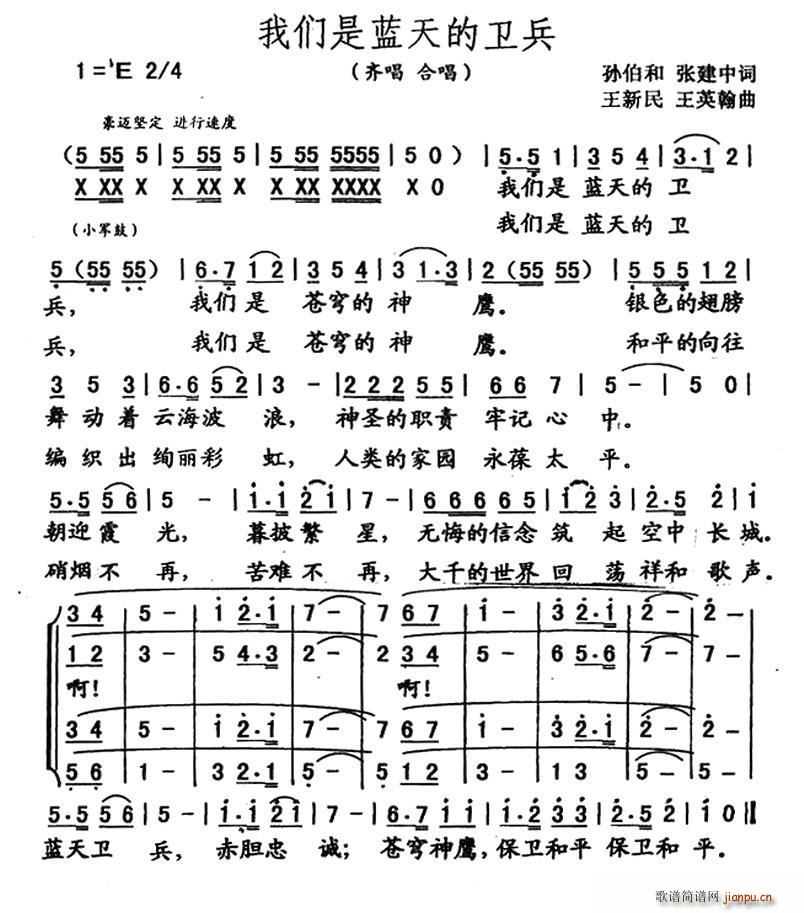 我们是蓝天的卫兵
1=♭E 2/4 （齐唱 合唱） 孙伯和 张建中词
王新民 王英翰曲
豪迈坚定 进行速度
（5 55 5 | 5 55 5 | 5 55 5555 | 5 0 ） | 5·5 1 | 3 5 4 | 3·1 2 |
X XX X X XX X X XX XXXX X 0 我们是 蓝天的 卫
（小军鼓） 我们是 蓝天的 卫
5 (55 55) | 6·7 1 2 | 3 5 4 | 3 1·3 | 2 (55 55) | 5 5 5 1 2 |
兵， 我们是 苍穹的 神 鹰。 银色的翅膀
兵， 我们是 苍穹的 神 鹰。 和平的向往
3 5 3 | 6·6 5 2 | 3 - | 2 2 2 5 5 | 6 6 7 | 5 - | 5 0 |
舞 动 着 云海波 浪， 神圣的职责 牢记 心 中。
编 织 出 绚丽彩 虹， 人类的家园 永葆 太 平。
5·5 5 6 | 5 - | 1·1 2 1 | 7 - | 6 6 6 6 5 | 1 2 3 | 2·5 2 | 1
朝迎 霞 光， 暮披 繁 星， 无悔的信念 筑 起 空中 长 城。
硝烟 不 再， 苦难 不 再， 大千的世界 回 荡 祥和 歌 声。
3 4 | 5 - | 1 2·1 | 7 - | 7 6 7 | 1 - | 3 2·1 | 2 - | 2 -
1 2 | 3 - | 5 4·3 | 2 - | 2 3 4 | 5 - | 6 5·6 | 7 - | 7 -
啊！ 啊！
3 4 | 5 - | 1 2·1 | 7 - | 7 6 7 | 1 - | 3 2·1 | 2 - | 2 -
5 6 | 1 - | 3 2·1 | 5 - | 5 1 2 | 3 - | 1 3 | 5 - | 5 -
5·5 5 6 | 5 - | 1·1 2 1 | 7 - | 6·7 1 1 | 1·2 3 3 | 2·5 2 | 1 0 ‖
蓝天 卫 兵， 赤胆 忠 诚； 苍穹神鹰，保卫和平 保卫和 平。
歌谱简谱网
jianpu.cn